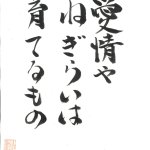 愛情や
ねぎらいは
育てるもの